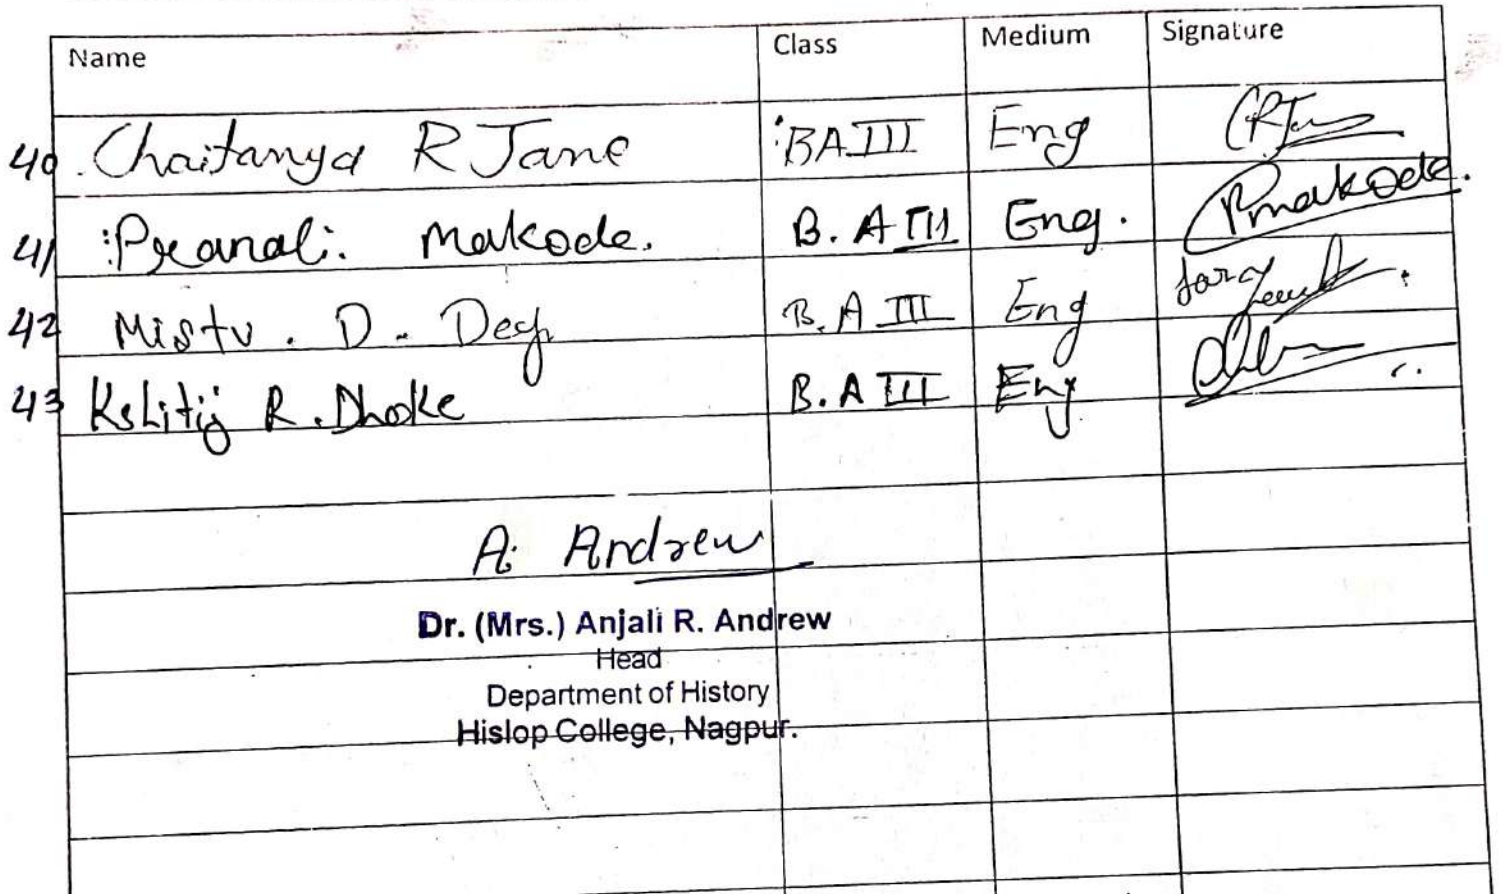 Name Class Medium Signature
40 Chaitanya R Jane BA III Eng
41 Pranali. Makode. B. A III Eng. Pmakode.
42 Mistu . D . Dey B. A III Eng
43 Kshitij R. Dhoke B. A III Eng
A. Andrew
Dr. (Mrs.) Anjali R. Andrew
Head
Department of History
Hislop College, Nagpur.